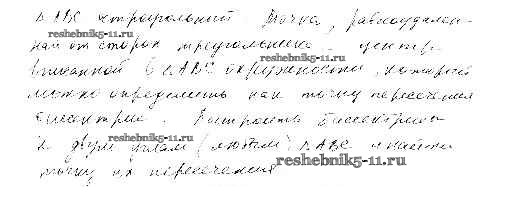 Δ ABC остроугольный. Точка, равноудален-
reshebnik5-11.ru
ная от сторон треугольника - центр
вписанной в ΔABC окружности, который
reshebnik5-11.ru
можно определить как точку пересечения
биссектрис. Построить биссектрисы
reshebnik5-11.ru
к двум углам (любым) ΔABC и найти
точку их пересечения
reshebnik5-11.ru